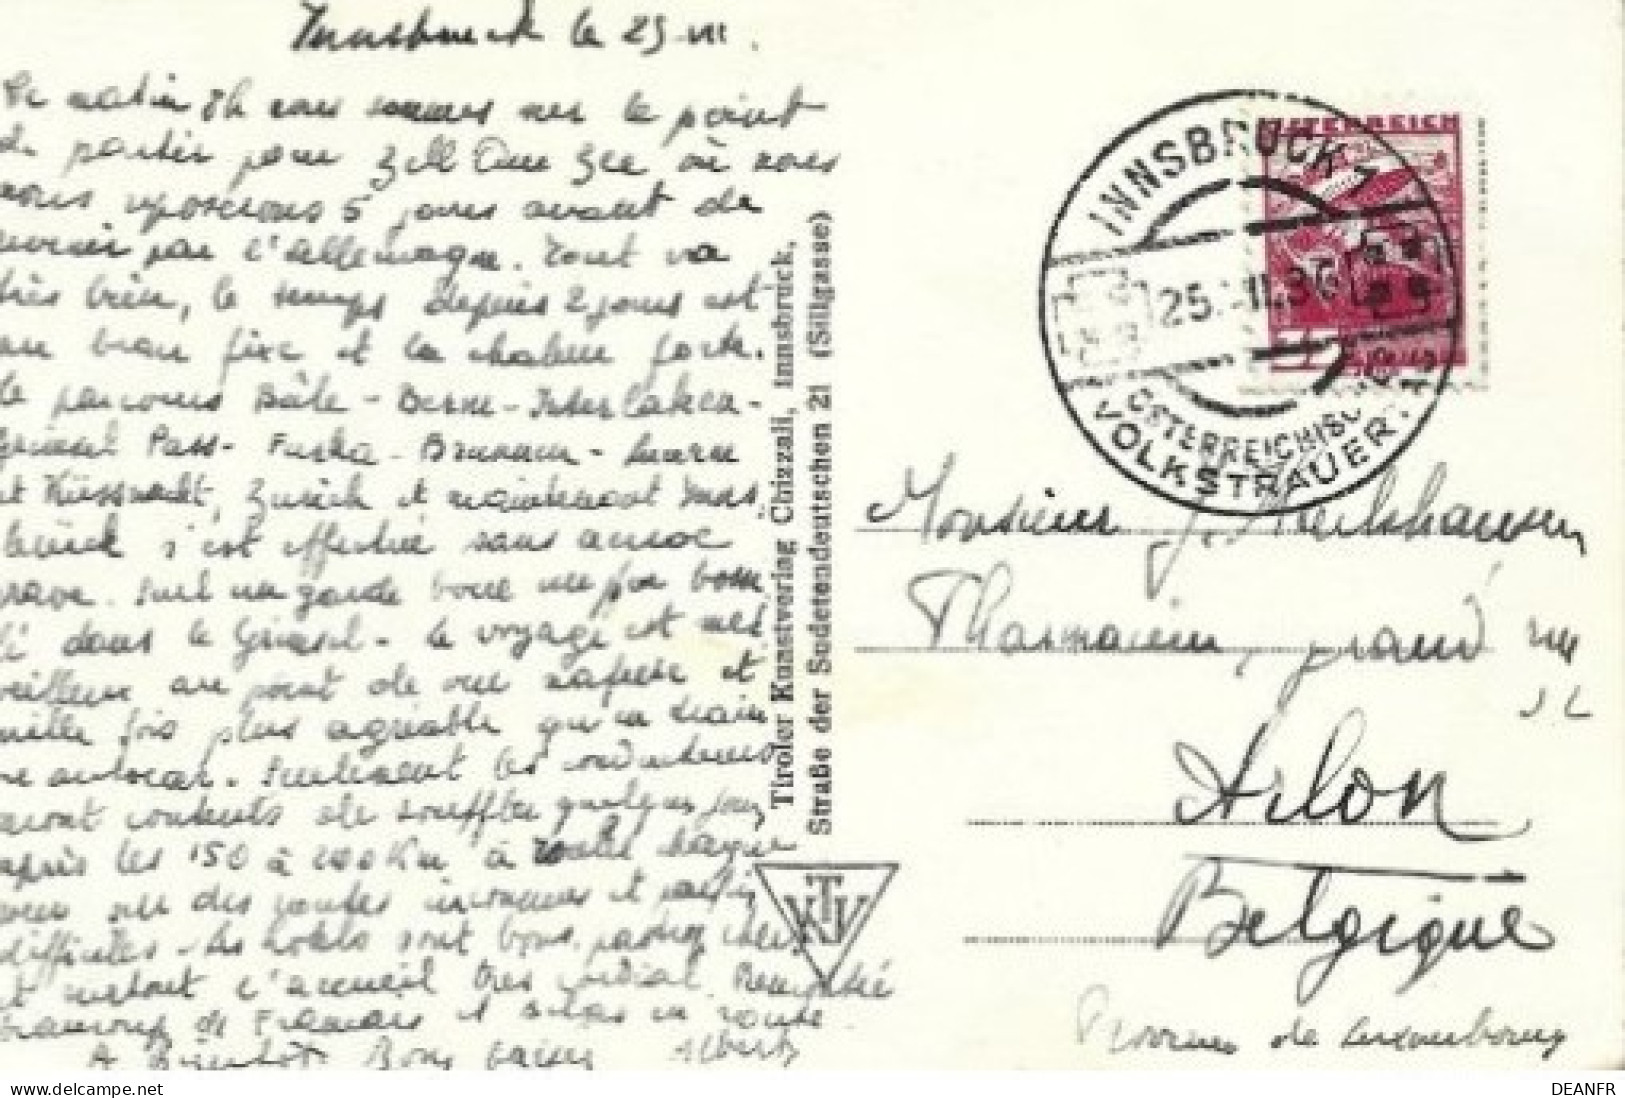 Innsbruck le 25 VII.
Ce matin 8h nous sommes sur le point
de partir pour Zell Am See où nous
nous reposerons 5 jours avant de
revenir par l'allemagne. Tout va
très bien, le temps depuis 2 jours est
au beau fixe et la chaleur forte.
le parcours Bâle - Berne - Interlaken -
Grimsel Pass - Furka - Brunnen - Lucerne
et Küssnacht, Zurich et maintenant Inns
bruck s'est effectué sans accroc
grave.
dans le Grimsel - le voyage est mer
veilleux au point de vue et
mille fois plus agréable qu'en train
ou autocar. Seulement les conducteurs
seront contents de souffler quelques jours
après les 150 à 200 Km à
sur des routes inconnues et parfois
difficiles - les hotels sont bons
et surtout l'accueil très cordial. Rencontré
beaucoup de Français et en route
A Bientot Bons baisers Albert
Tiroler Kunstverlag Chizzali, Innsbruck,
Straße der Sudetendeutschen 21 (Sillgasse)
TKV
ÖSTERREICH
INNSBRUCK 1
25. VII. 36
ÖSTERREICHISCHE
VOLKSTRAUER
Monsieur J.
Pharmacien, grand rue
Arlon
Belgique
Province de Luxembourg
delcampe.net
DEANFR